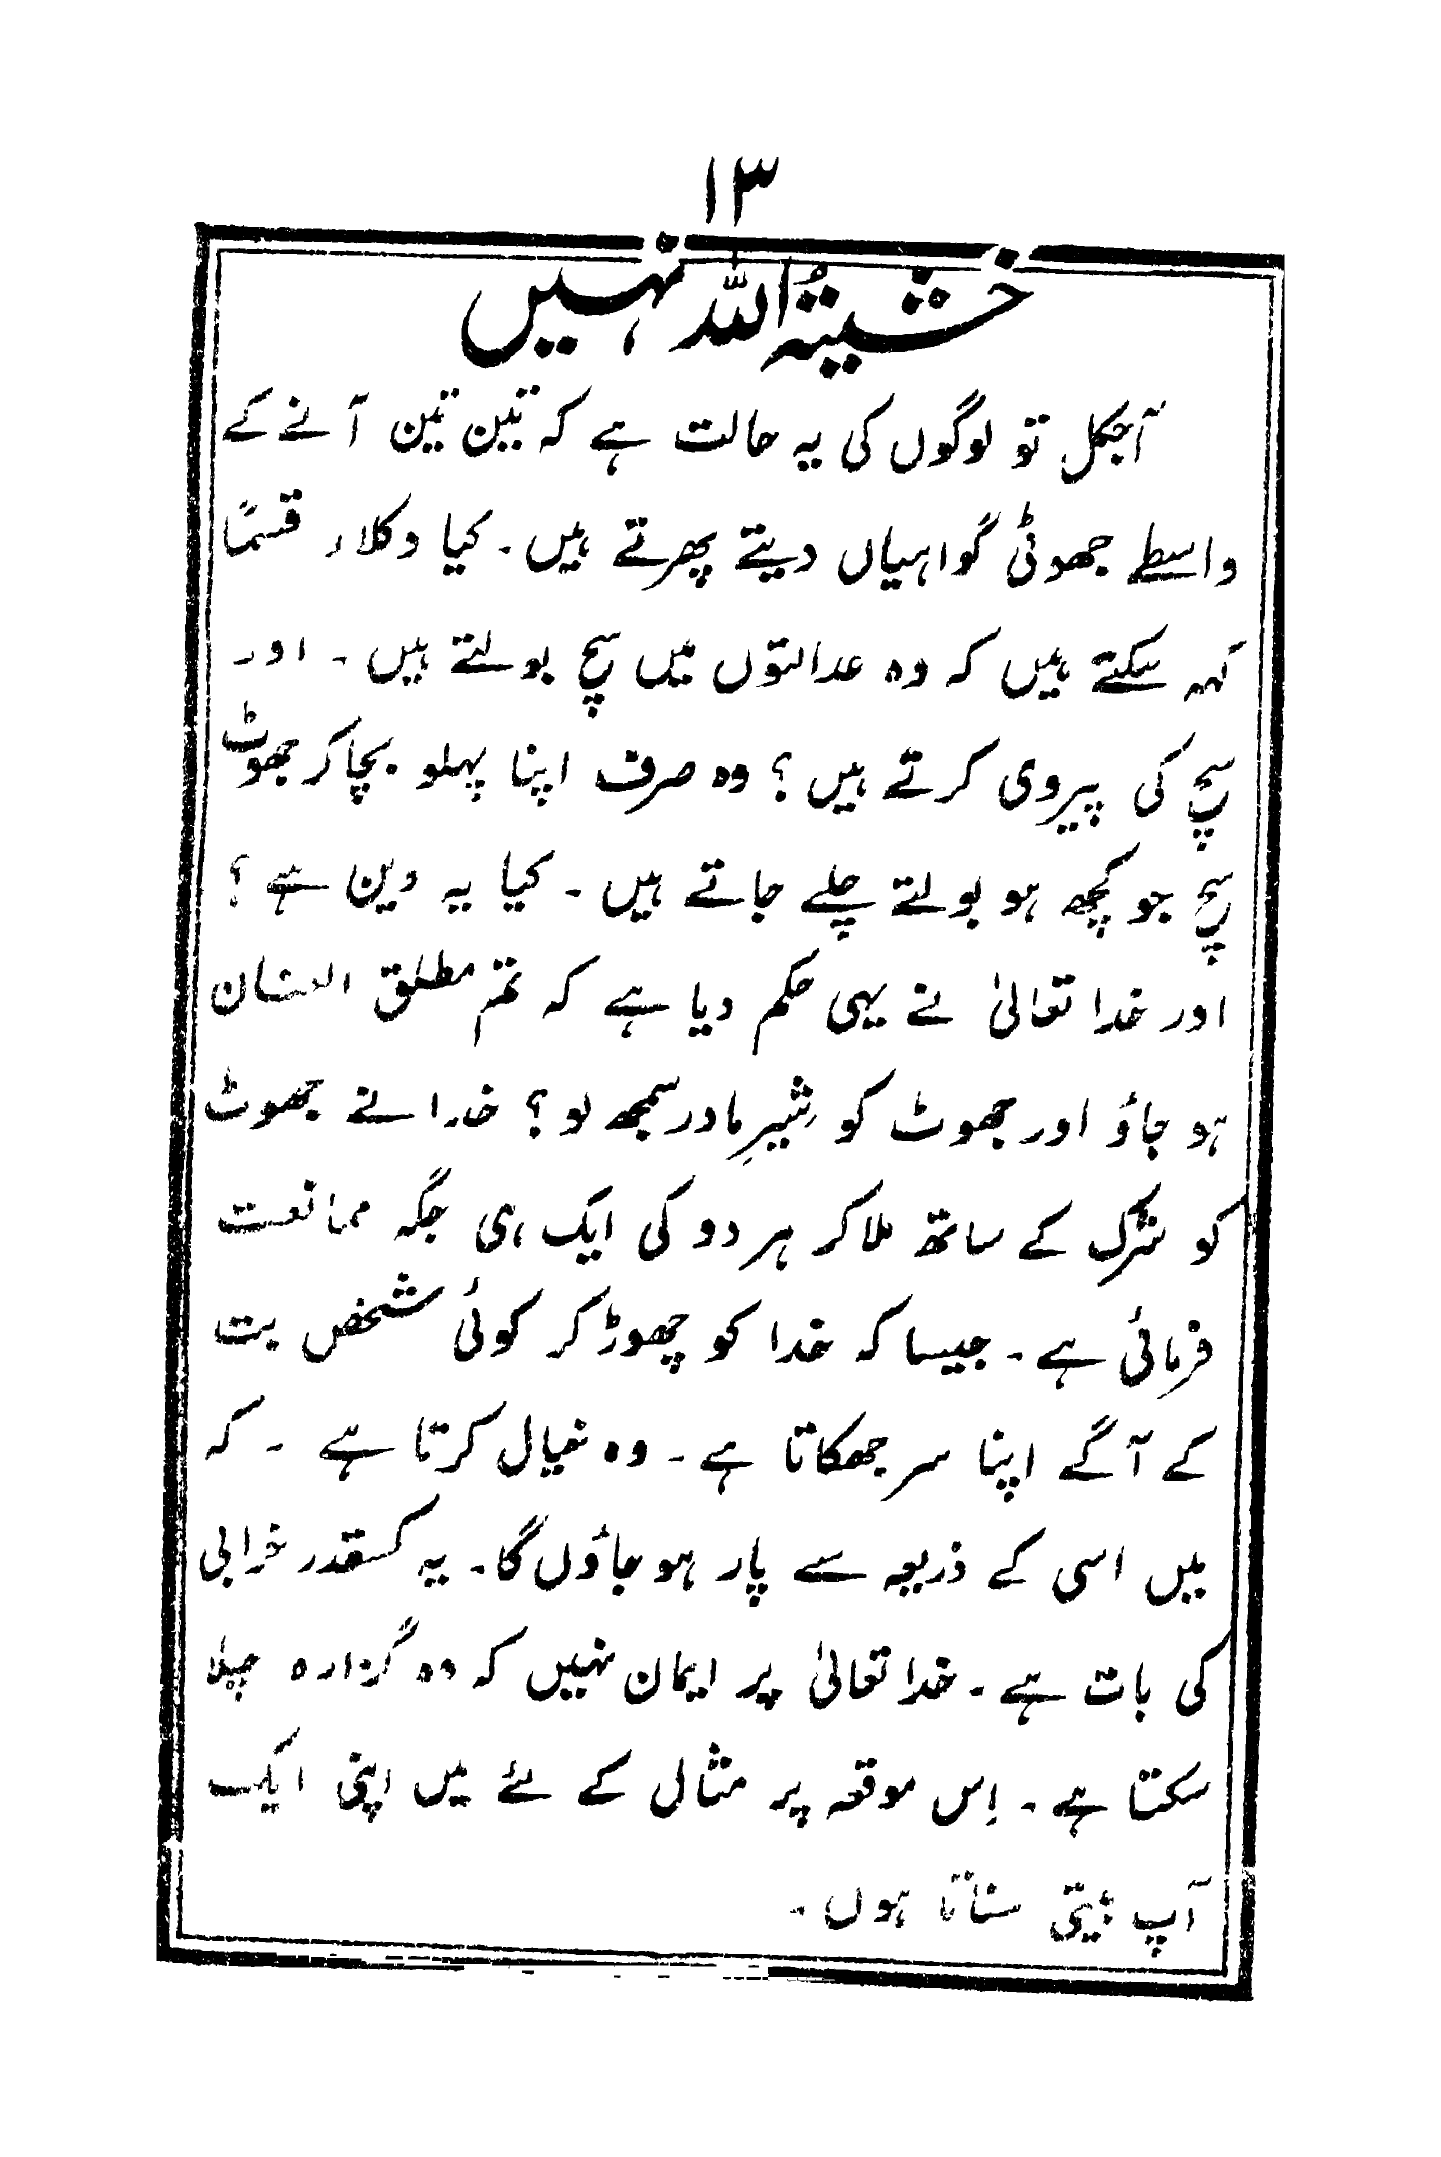 ۱۳
خشیۃُ اللہ نہیں
آجکل تو لوگوں کی یہ حالت ہے کہ تین تین آنے کے
واسطے جھوٹی گواہیاں دیتے پھرتے ہیں۔ کیا وکلاء قسماً
کہہ سکتے ہیں کہ وہ عدالتوں میں سچ بولتے ہیں۔ اور
سچ کی پیروی کرتے ہیں؟ وہ صرف اپنا پہلو بچا کر جھوٹ
سچ جو کچھ ہو بولتے چلے جاتے ہیں۔ کیا یہ دین ہے؟
اور خدا تعالیٰ نے یہی حکم دیا ہے کہ تم مطلق العنان
ہو جاؤ اور جھوٹ کو شیرِ مادر سمجھ لو؟ خدا نے جھوٹ
کو شرک کے ساتھ ملا کر ہر دو کی ایک ہی جگہ ممانعت
فرمائی ہے۔ جیسا کہ خدا کو چھوڑ کر کوئی شخص بت
کے آگے اپنا سر جھکاتا ہے۔ وہ خیال کرتا ہے۔ کہ
میں اسی کے ذریعہ سے پار ہو جاؤں گا۔ یہ کسقدر خرابی
کی بات ہے۔ خدا تعالیٰ پر ایمان نہیں کہ وہ گزارہ چلا
سکتا ہے۔ اِس موقعہ پر مثال کے لئے میں اپنی ایک
آپ بیتی سناتا ہوں۔